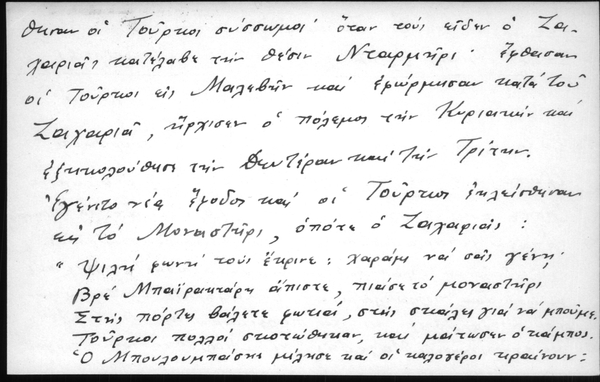 θησαν οἱ Τοῦρκοι σύσσωμοι· ὅταν τούς εἶδεν ὁ Ζα-
χαριᾶς κατέλαβε τήν θέσιν Νταρμῆρι· ἔφθασαν
οἱ Τοῦρκοι εἰς Μαλεβῆν καί ἐφώρμησαν κατά τοῦ
Ζαχαριᾶ, ἤρχισεν ὁ πόλεμος τήν Κυριακήν καί
ἐξηκολούθησε τήν Δευτέραν καί τήν Τρίτην.
Ἐγένετο νέα ἔφοδος καί οἱ Τοῦρκοι ἐκλείσθησαν
εἰς τό Μοναστῆρι, ὁπότε ὁ Ζαχαριᾶς :
" Ψιλή φωνή τούς ἔκρινε : χαράμι νά σᾶς γένῃ,
Βρέ Μπαϊρακτάρη ἄπιστε, πιάσε τό μοναστῆρι
Στῆς πόρτες βάλετε φωτιά, στῆς σκάλες γιά νά μποῦμε.
Τοῦρκοι πολλοί σκοτώθηκαν, καί μάτωσεν ὁ κάμπος.
Ὁ Μπουλουμπάσης μίλησε καί οἱ καλογέροι κραίνουν :